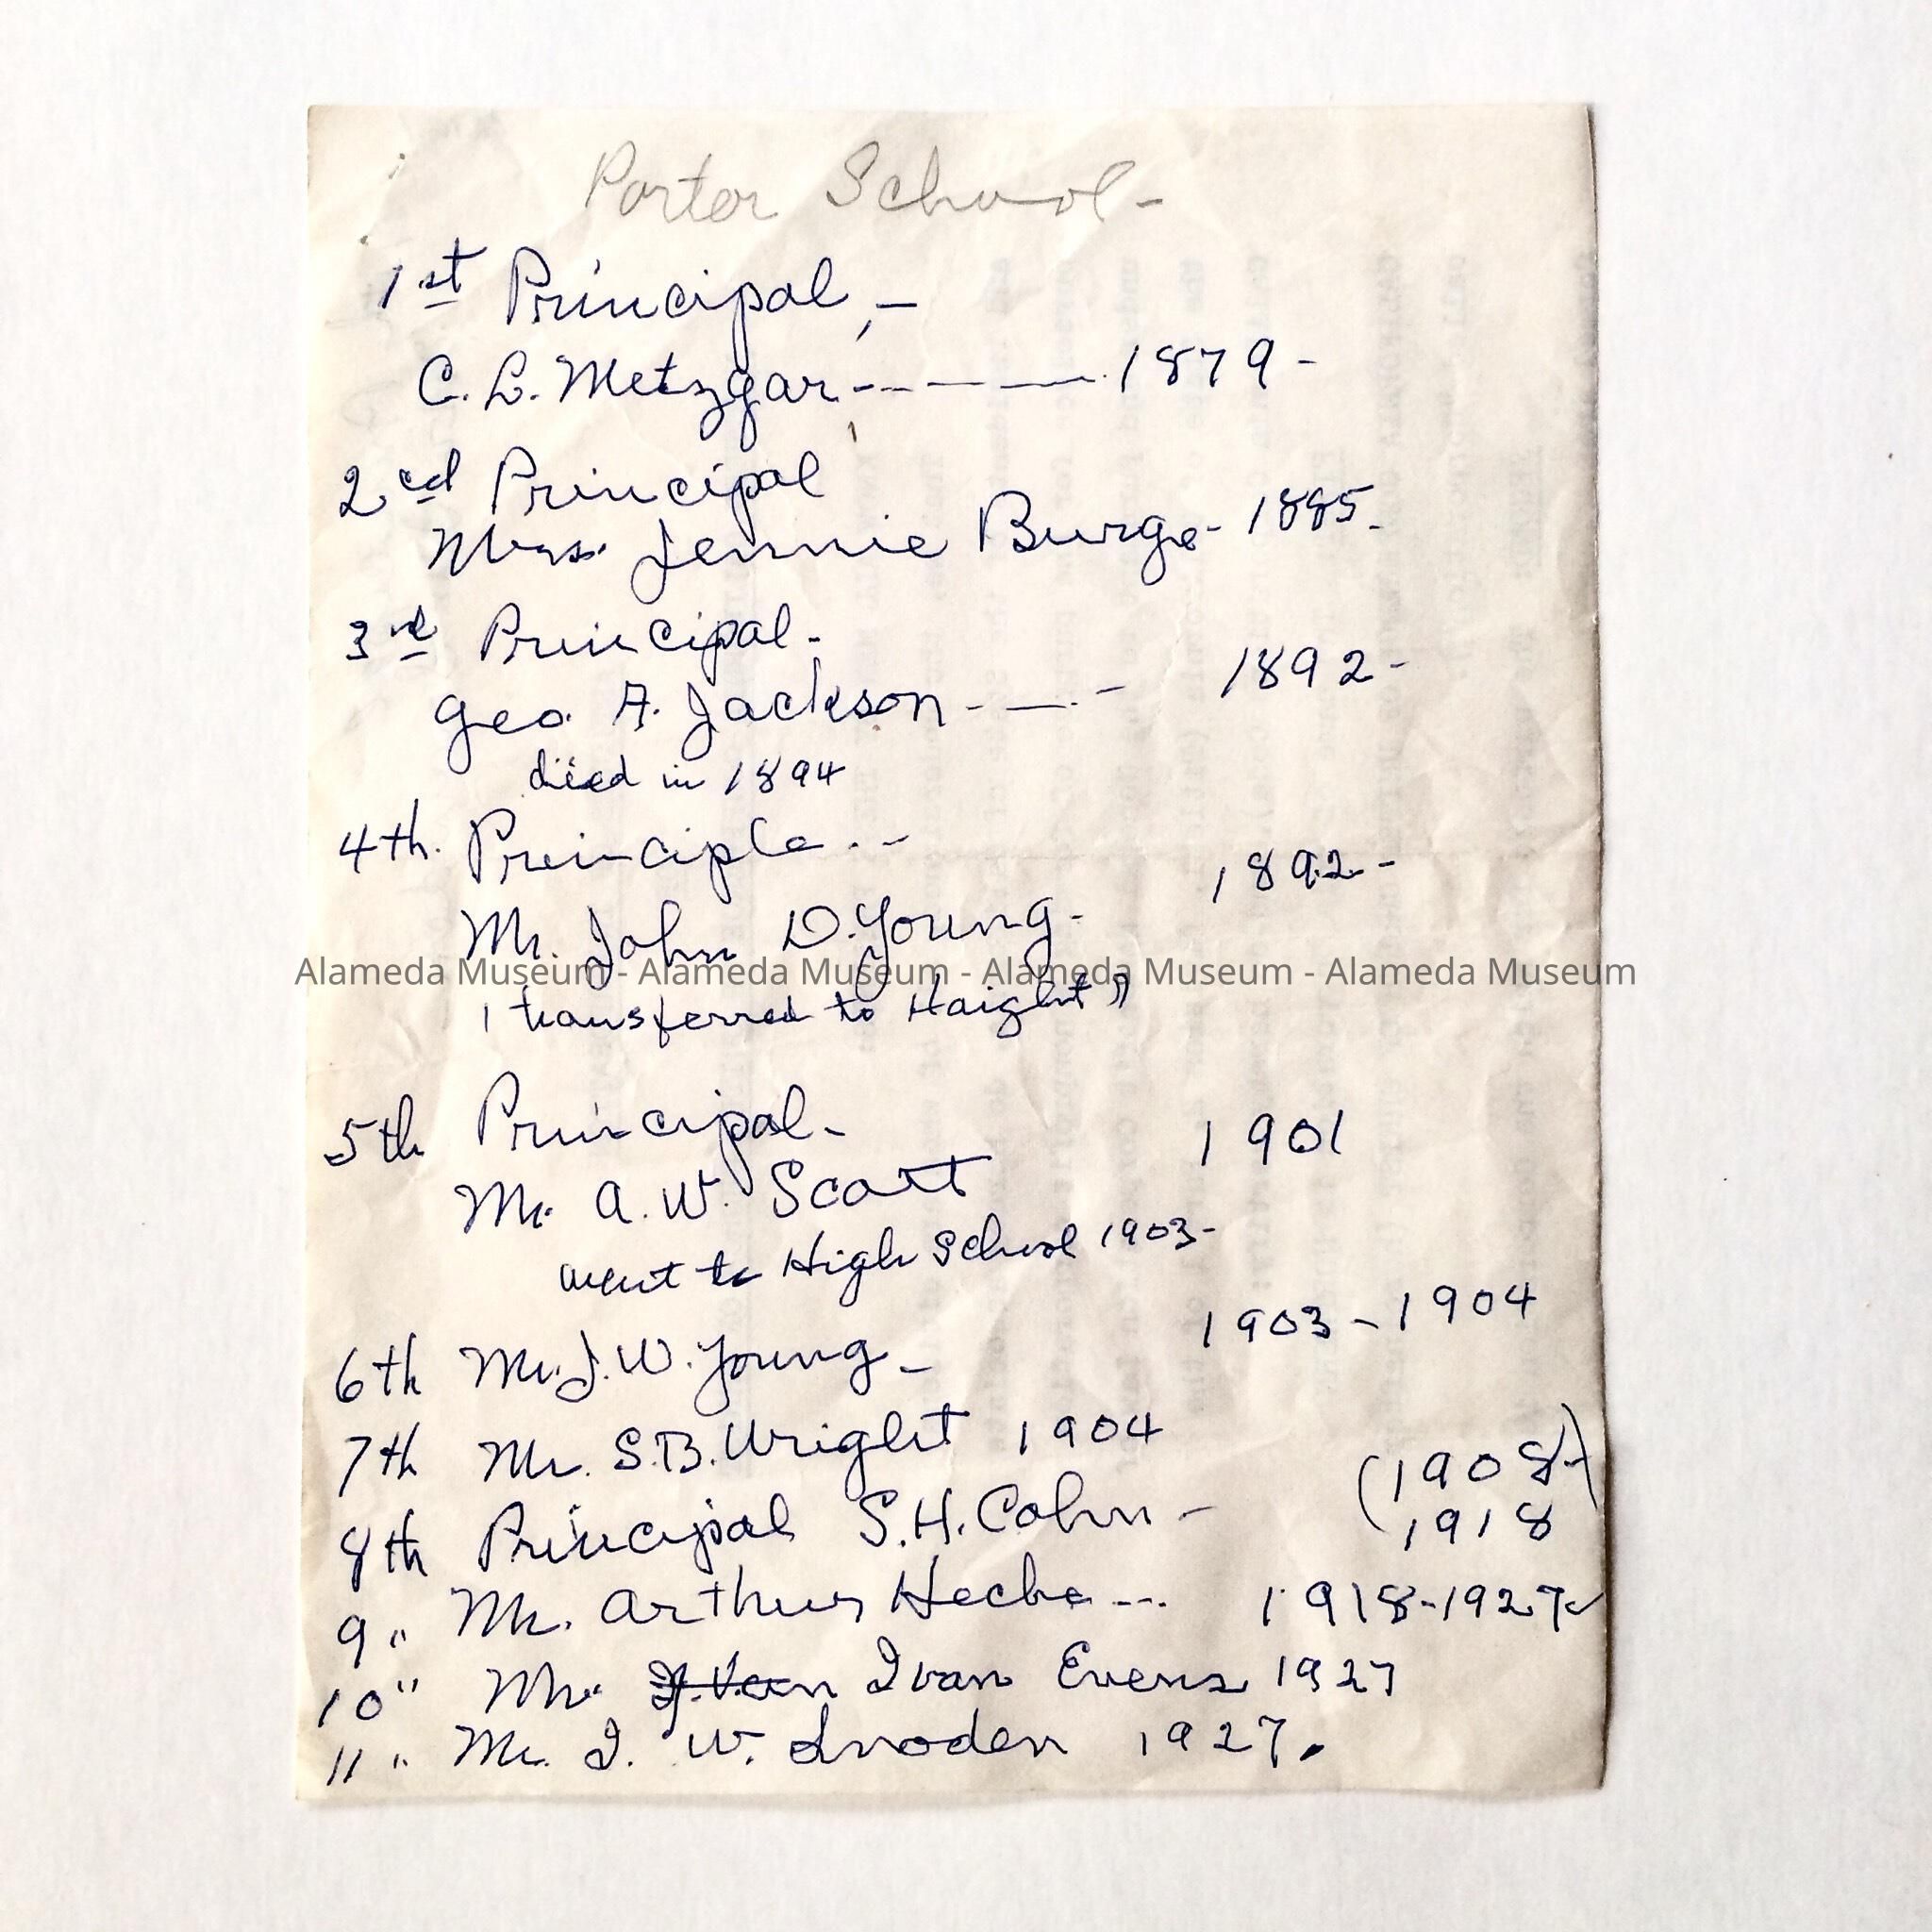 Porter School -
1st Principal, -
C. L. Metzgar - - - — — 1879 -
2cd Principal
Mrs. Jennie Burge - 1885 -
3rd Principal -
Geo. A. Jackson - — . - 1892 -
died in 1894
4th. Principle . . -
1892 -
Mr. John D. Young -
Alameda Museum - Alameda Museum - Alameda Museum - Alameda Museum
transferred to Haight"
5th Principal -
1901
Mr. A. W. Scott
went to High School 1903 -
1903 - 1904
6th Mr. J. W. Young -
7th Mr. S. B. Wright 1904
8th Principal S. H. Cohn - (1908 -)
1918
9 " Mr. Arthur Heche - - - 1918 - 1927
10 " Mr. Ivan Evens 1927
11 " Mr. J. W. Snoden 1927.